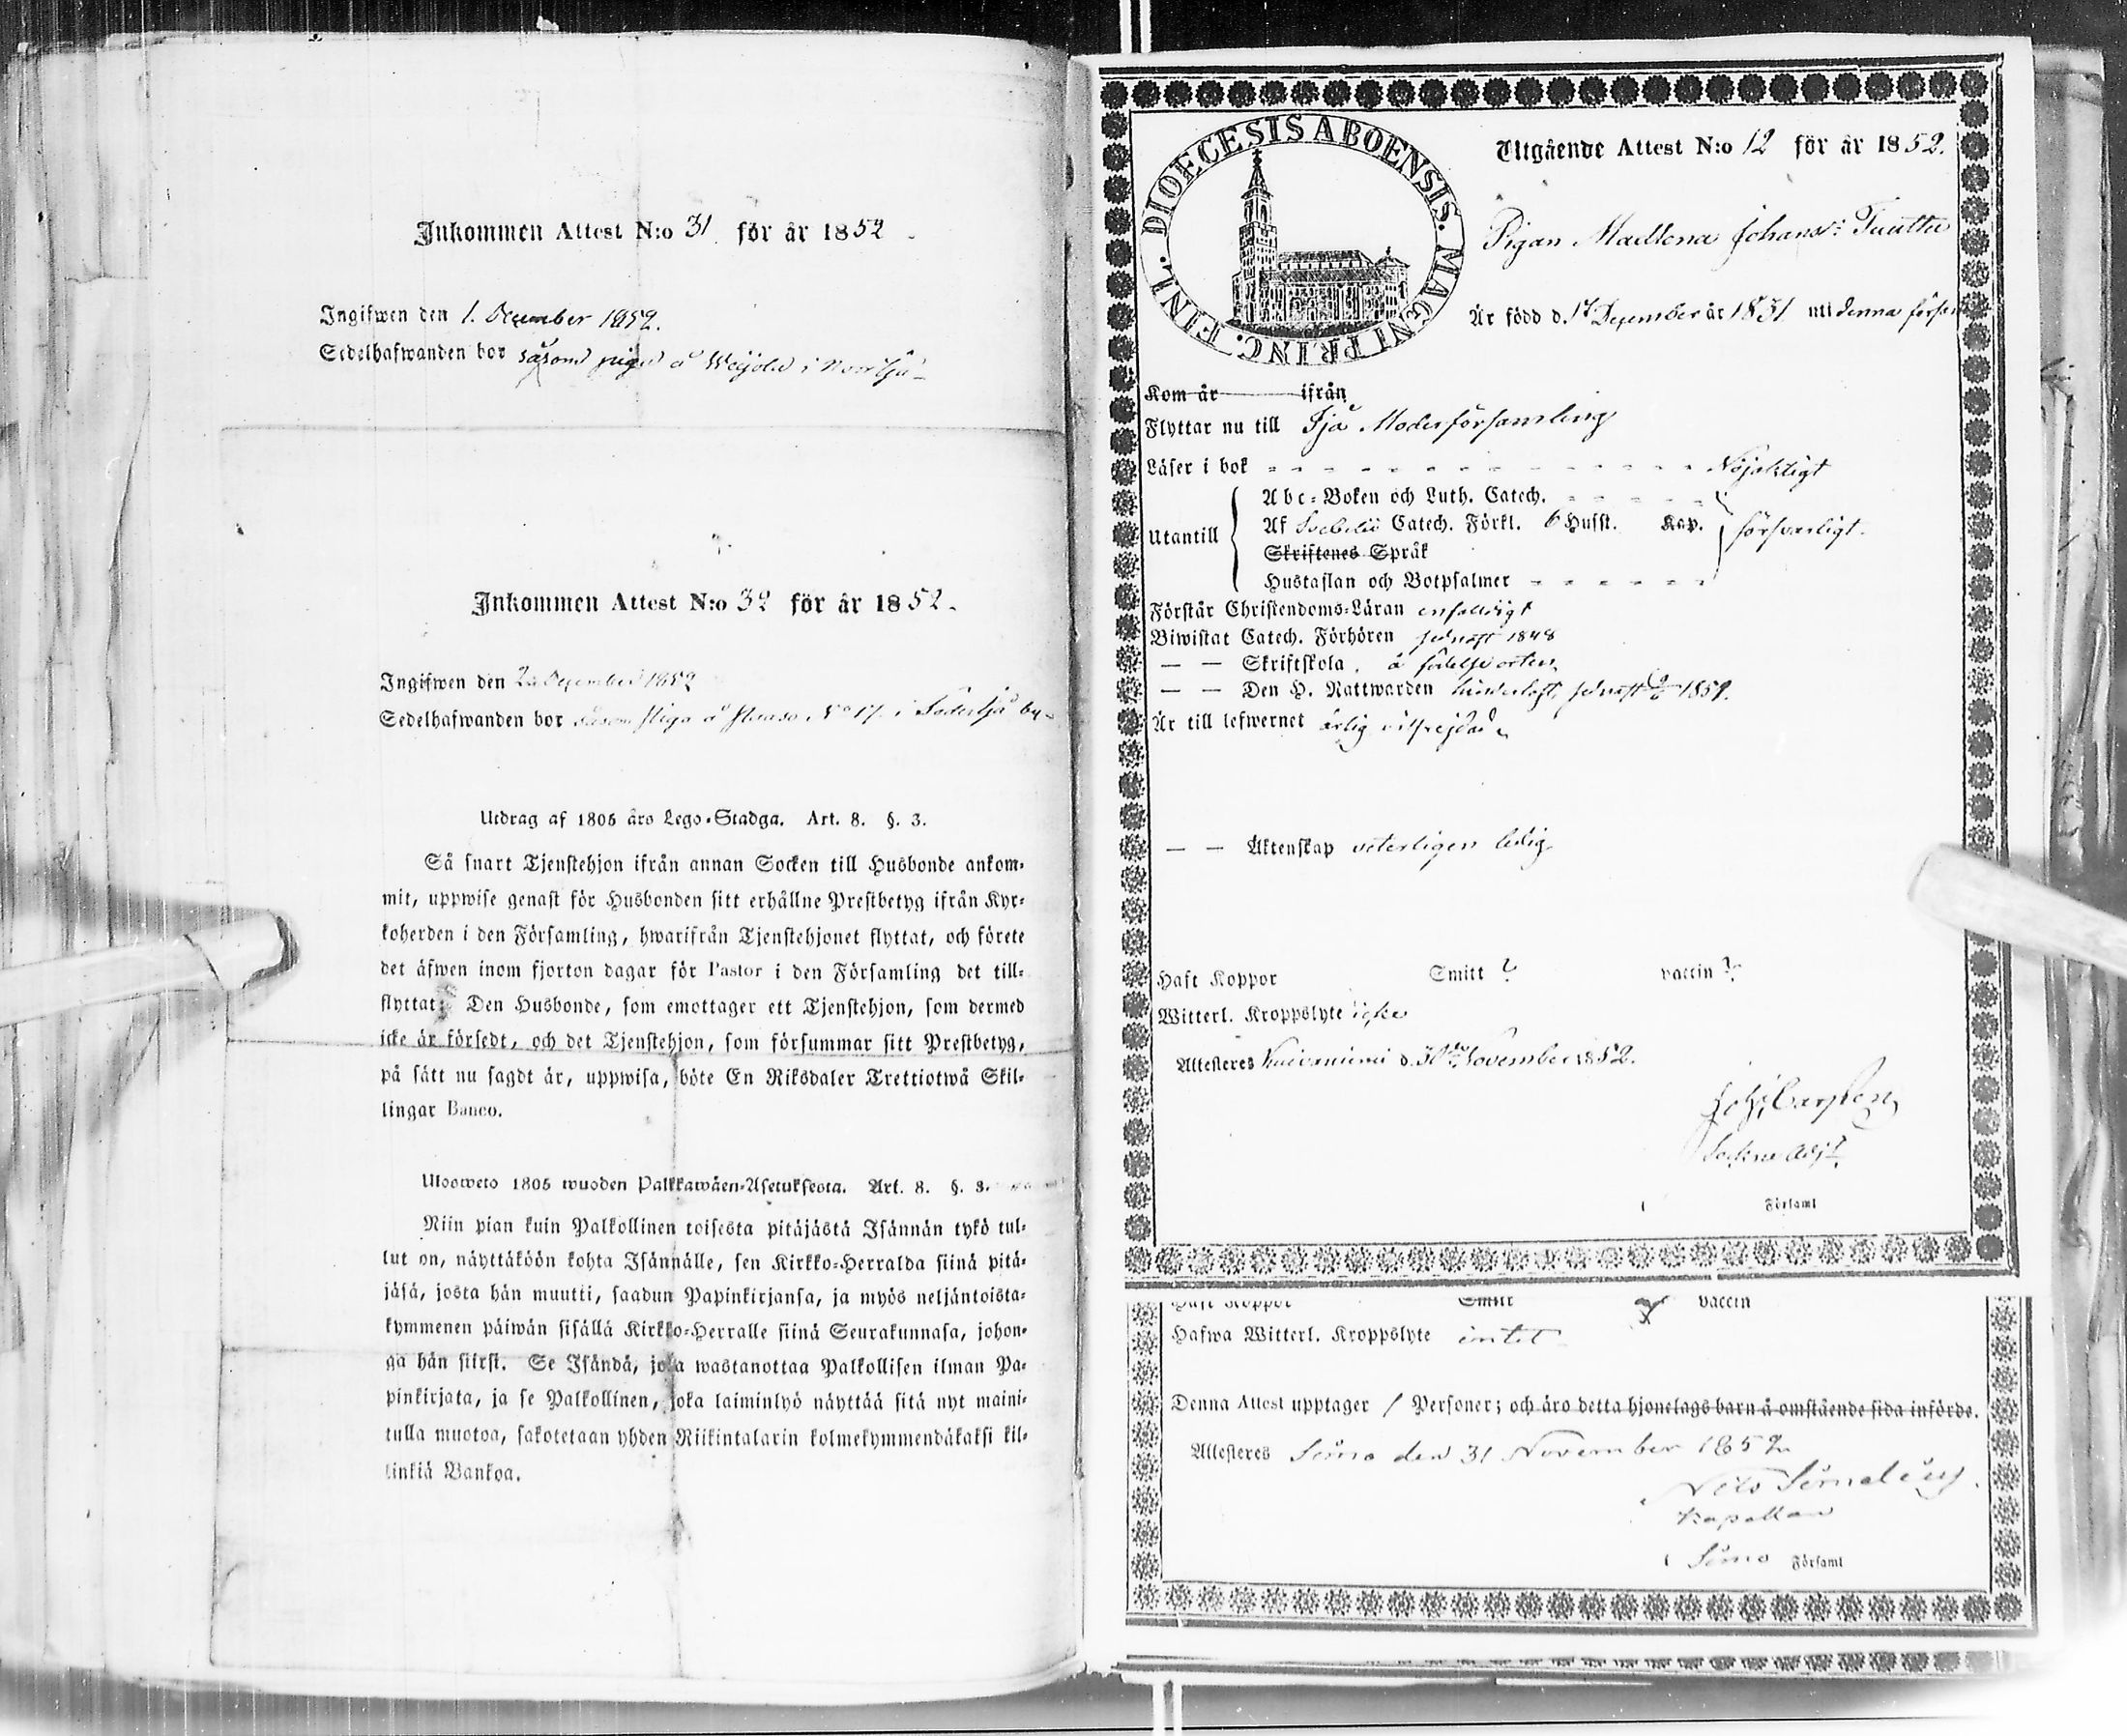 Inkommen Attest N:o 31 för år 1852
Ingifwen den 1. December 1852.
Sedelhafwanden bor såsom piga å Weijola i Norr Ijå
Inkommen Attest N:o 32 för år 1852.
Ingifwen den 2 December 1852
Sedelhafwanden bor såsom piga å No 17. i Söderijå by
Utdrag af 1805 års Lego-Stadga. Art. 8. §. 3.
Så snart Tjenstehjon ifrån annan Socken till Husbonde ankom-
mit, uppwise genast för Husbonden sitt erhållne Prestbetyg ifrån Kyr-
koherden i den Församling, hwarifrån Tjenstehjonet flyttat, och förete
det äfwen inom fjorton dagar för Pastor i den Församling det till-
flyttat. Den Husbonde, som emottager ett Tjenstehjon, som dermed
icke är försedt, och det Tjenstehjon, som försummar sitt Prestbetyg,
på sätt nu sagdt är, uppwisa, böte En Riksdaler Trettiotwå Skil-
lingar Banco.
Ulosweto 1805 wuoden Palkkawäen-Asetuksesta. Art. 8. §. 3.
Niin pian kuin Palkollinen toisesta pitäjästä Isännän tykö tul-
lut on, näyttäköön kohta Isännälle, sen Kirkko-Herralda siinä pitä-
jäsä, josta hän muutti, saadun Papinkirjansa, ja myös neljäntoista-
kymmenen päiwän sisällä Kirkko-Herralle siinä Seurakunnasa, johon-
ga hän siirsi. Se Isändä, joka wastanottaa Palkollisen ilman Pa-
pinkirjata, ja se Palkollinen, joka laiminlyö näyttää sitä nyt maini-
tulla muotoa, sakotetaan yhden Riikintalarin kolmekymmendäkaksi kil-
linkiä Bankoa.
DIOECESIS ABOENSIS. MAGNI PRINC. FINL.
Utgående Attest N:o 12 för år 1852.
Pigan Madlena Johans: Tuutta
Är född d. 17 December år 1831 uti denna församl
Kom år ifrån
Flyttar nu till Ijå Moderförsamling
Läser i bok - - - - - - - - - - - - - - Nöjaktigt
Utantill
Abc-Boken och Luth. Catech. - - - - -
Af Svebelii Catech. Förkl. 6 Hufst. Kap.
försvarligt.
Skriftenes Språk
Hustaflan och Botpsalmer - - - - - -
Förstår Christendoms-Läran enfaldigt
Biwistat Catech. Förhören sednast 1848
— — Skriftskola. å födelseorten
— — Den H. Nattwarden sednast 1852.
Är till lefwernet ärlig välfrejdad
— — Äktenskap veterligen ledig
Haft Koppor Smitt ? vaccin ?
Witterl. Kroppslyte icke
Attesteres Kuivaniemi d. 30 November 1852.
Joh. Carlsten
Sockne Adjt.
i Församl
Haft Koppor Smitt vaccin
Hafwa Witterl. Kroppslyte intet
Denna Attest upptager 1 Personer; och äro detta hjonelags barn å omstående sida införde.
Attesteres Simo den 31 November 1852
Nils Simelius
Kapellan
i Simo Församl